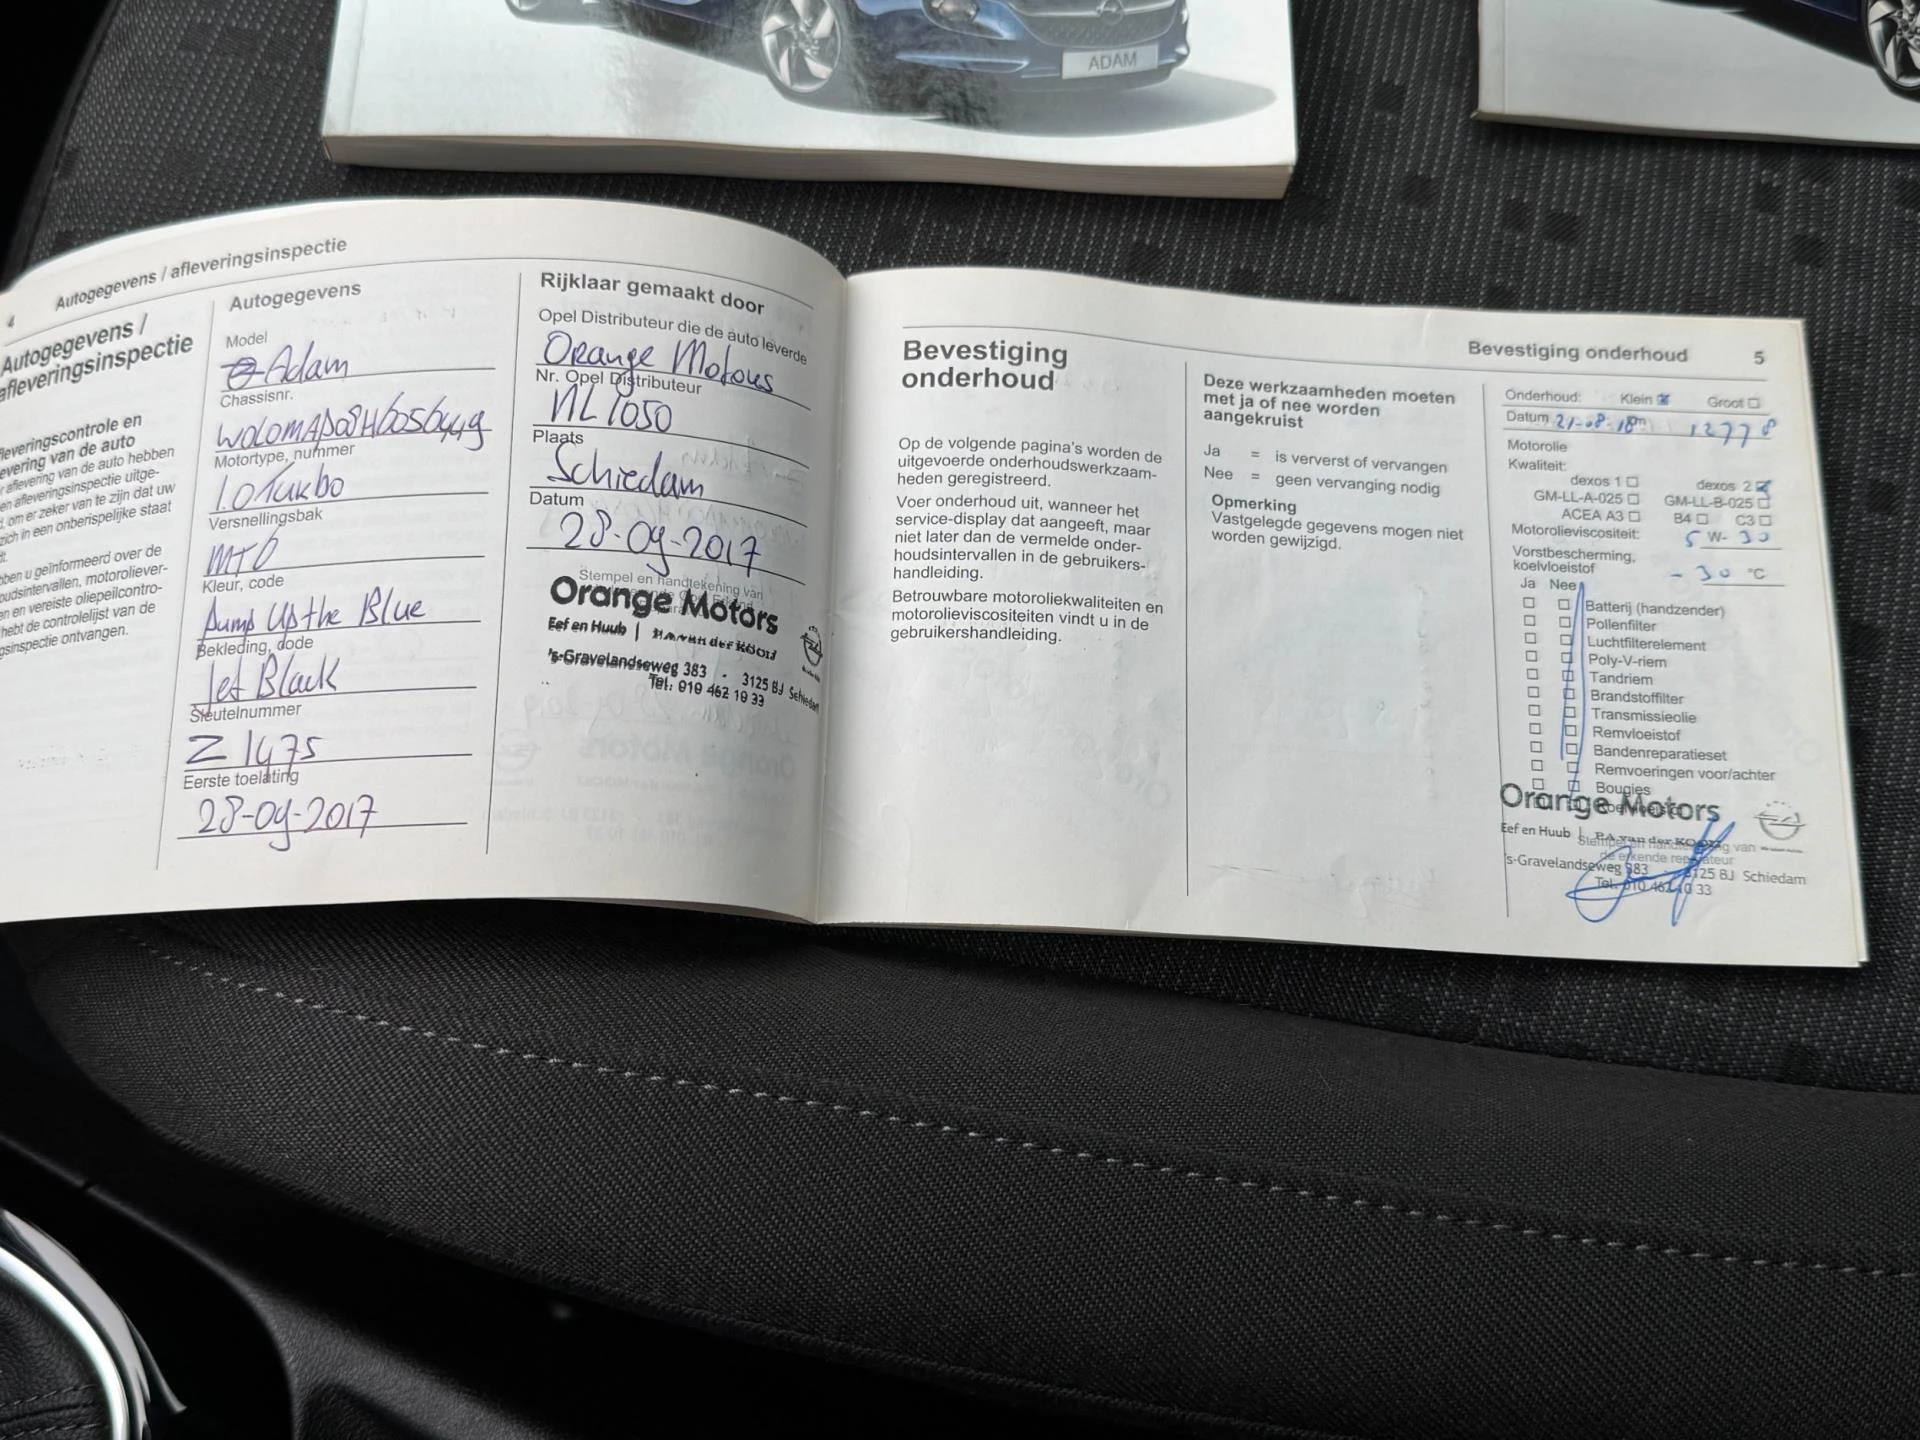 ADAM
4
Autogegevens / afleveringsinspectie
Autogegevens /
afleveringsinspectie
leveringscontrole en
evering van de auto
aflevering van de auto hebben
en afleveringsinspectie uitge-
, om er zeker van te zijn dat uw
zich in een onberispelijke staat
ben u geïnformeerd over de
oudsintervallen, motoroliever-
en en vereiste oliepeilcontro-
hebt de controlelijst van de
gsinspectie ontvangen.
Autogegevens
Model
Adam
Chassisnr.
W0L0MAP08H6056449
Motortype, nummer
1.0 Turbo
Versnellingsbak
MT6
Kleur, code
Pump Up the Blue
Bekleding, code
Jet Black
Sleutelnummer
Z 1475
Eerste toelating
28-09-2017
Rijklaar gemaakt door
Opel Distributeur die de auto leverde
Orange Motors
Nr. Opel Distributeur
NL 1050
Plaats
Schiedam
Datum
28-09-2017
Stempel en handtekening van
Orange Motors
Eef en Huub | P.A. van der KOOIJ
's-Gravelandseweg 383 - 3125 BJ Schiedam
Tel. 010 462 10 33
Bevestiging onderhoud 5
Bevestiging
onderhoud
Op de volgende pagina's worden de
uitgevoerde onderhoudswerkzaam-
heden geregistreerd.
Voer onderhoud uit, wanneer het
service-display dat aangeeft, maar
niet later dan de vermelde onder-
houdsintervallen in de gebruikers-
handleiding.
Betrouwbare motoroliekwaliteiten en
motorolieviscositeiten vindt u in de
gebruikershandleiding.
Deze werkzaamheden moeten
met ja of nee worden
aangekruist
Ja = is ververst of vervangen
Nee = geen vervanging nodig
Opmerking
Vastgelegde gegevens mogen niet
worden gewijzigd.
Onderhoud: Klein Groot
Datum 21-08-18 km 12778
Motorolie
Kwaliteit:
dexos 1 dexos 2
GM-LL-A-025 GM-LL-B-025
ACEA A3 B4 C3
Motorolieviscositeit: 5 W- 30
Vorstbescherming,
koelvloeistof - 30 °C
Ja Nee
Batterij (handzender)
Pollenfilter
Luchtfilterelement
Poly-V-riem
Tandriem
Brandstoffilter
Transmissieolie
Remvloeistof
Bandenreparatieset
Remvoeringen voor/achter
Bougies
Koelvloeistof
Orange Motors
Eef en Huub | P.A. van der KOOIJ
Stempel en handtekening van
de erkende reparateur
's-Gravelandseweg 383 - 3125 BJ Schiedam
Tel. 010 462 10 33